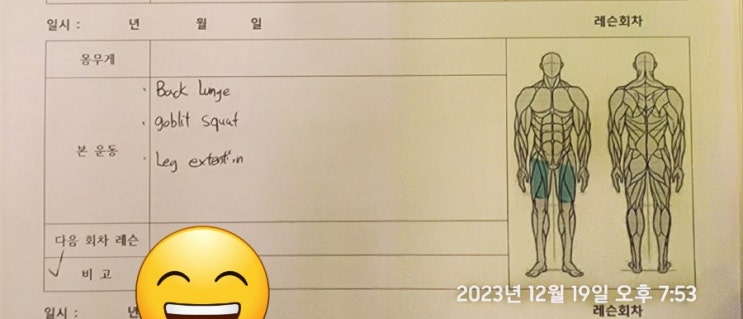 일시 : 년 월 일 레슨회차
몸무게
본 운동
· Back lunge
· goblit squat
· Leg extention
다음 회차 레슨
비 고
2023년 12월 19일 오후 7:53
일시 : 년 레슨회차